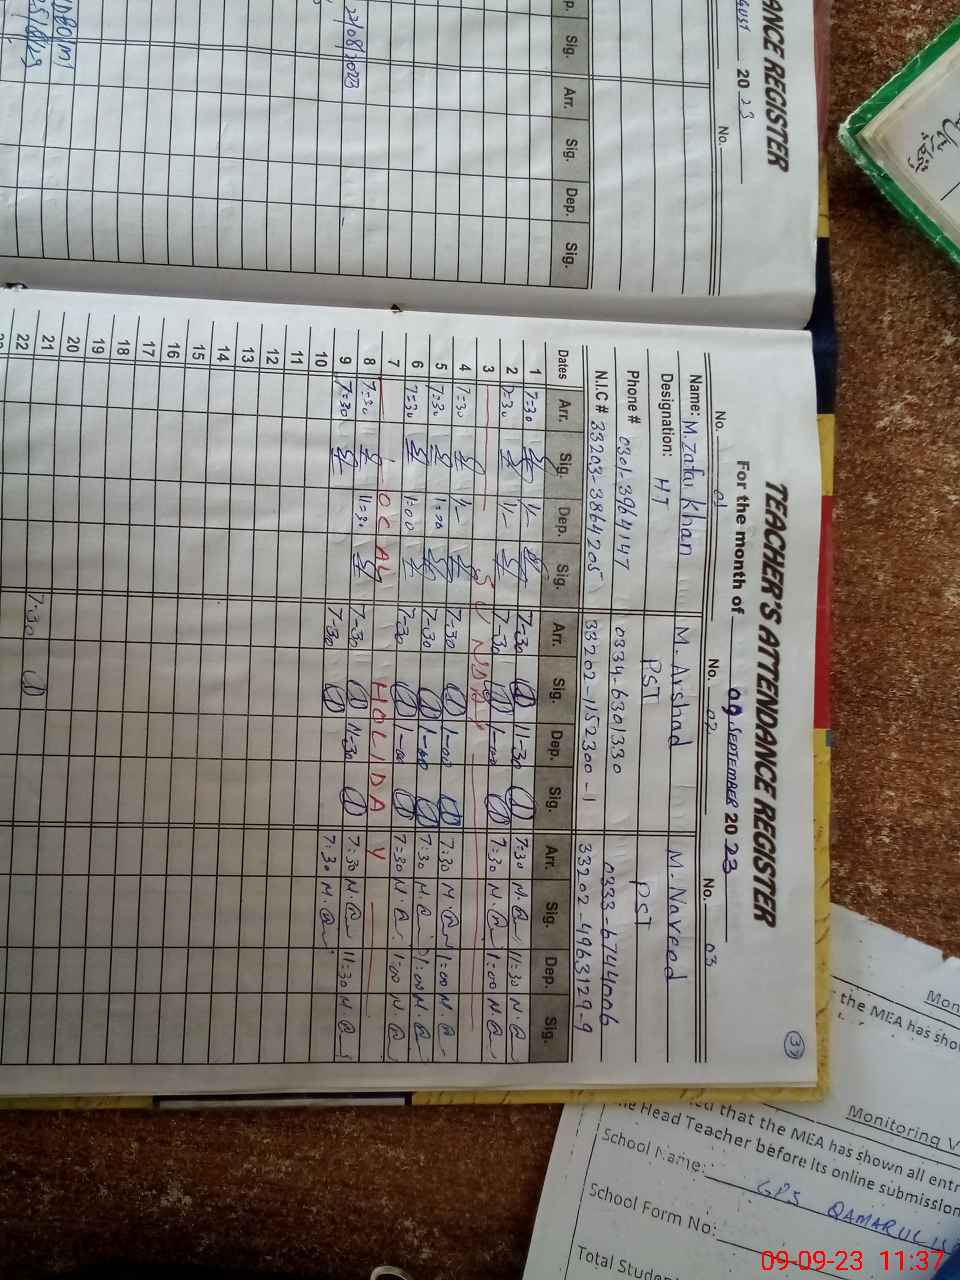 TEACHER'S ATTENDANCE REGISTER
37
For the month of 09 SEPTEMBER 2023
No. 01 No. 02 No. 03
Name: M. Zafar Khan M. Arshad M. Naveed
Designation: HT PST PST
Phone # 0301-3964147 0334-6301330 0333-6744006
N.I.C # 33203-3864205 33202-1152300-1 33202-4963129-9
Dates Arr. Sig. Dep. Sig. Arr. Sig. Dep. Sig. Arr. Sig. Dep. Sig.
1 7=30 1/- 7=30 11-30 7=30 11=30
2 7=30 1/- 7-30 1-00 7=30 1=00
3 SUNDAY
4 7=30 1/- 7-30 1-00 7=30 1=00
5 7=30 1=00 7-30 1-00 7=30 1=00
6 7=30 1=00 7-30 1-00 7=30 1=00
7 LOCAL HOLIDAY
8 7=30 11=30 7-30 11-30 7=30 11=30
9 7=30 7-30 7=30
10
11
12
13
14
15
16
17
18
19
20
21 7-30
22
ANCE REGISTER
2023
No.
p. Sig. Arr. Sig. Dep. Sig.
22/08/2023
the MEA has sho
Monitoring V
that the MEA has shown all entr
Head Teacher before its online submission
School Name: GPS QAMARUL IS
School Form No:
Total Studen
09-09-23 11:37